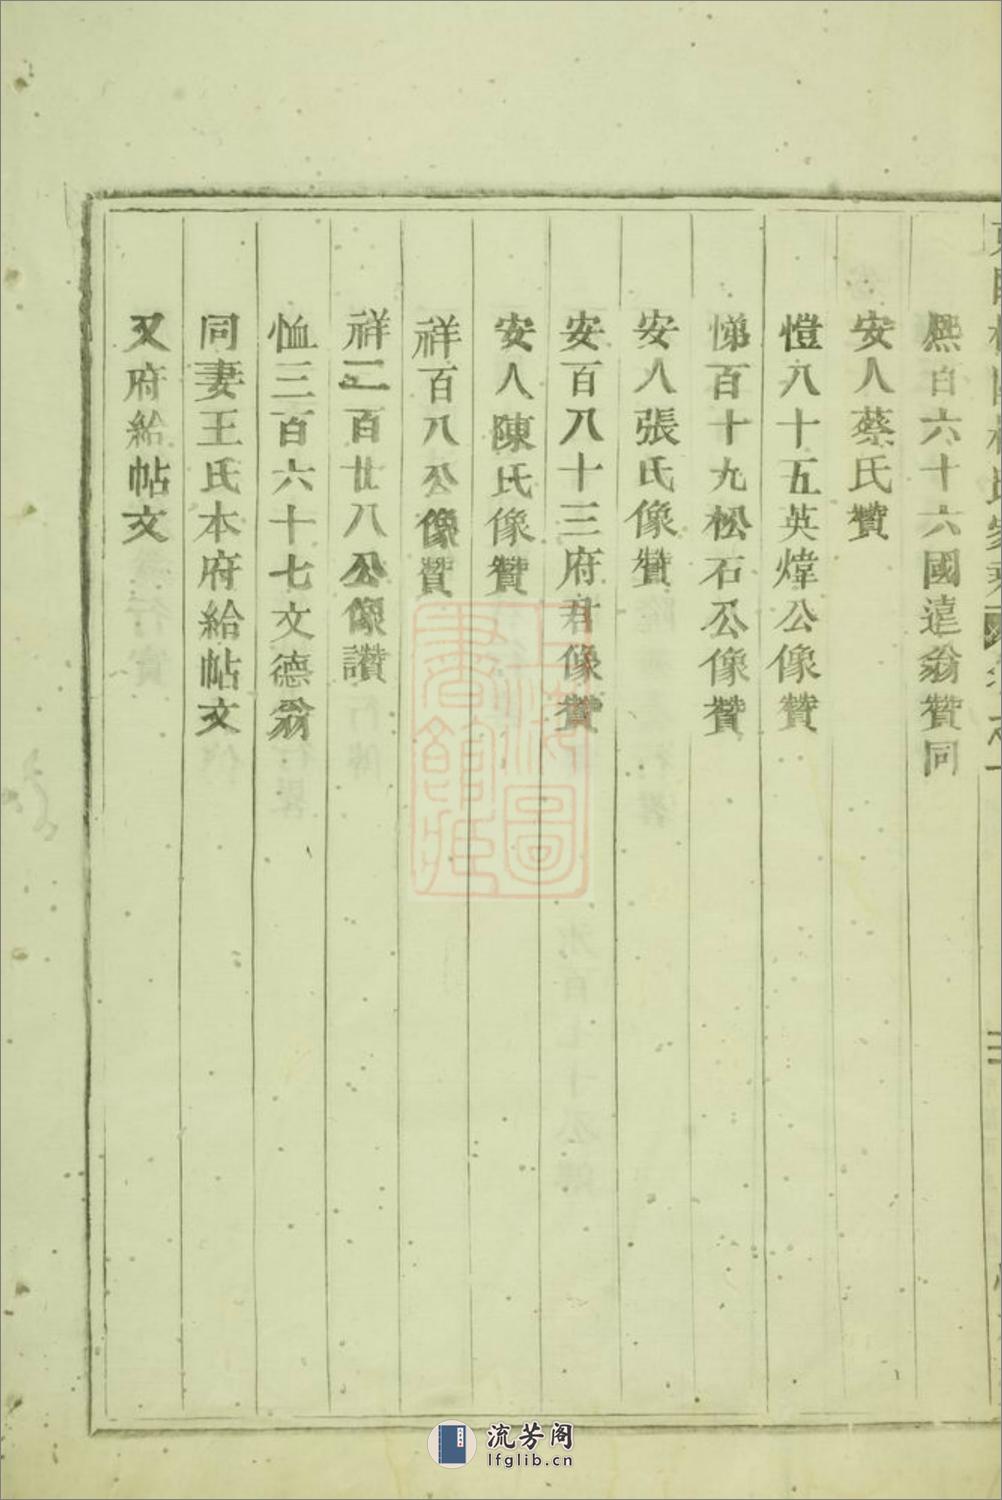 熈百六十六國遠翁贊同
安人蔡氏贊
愷八十五英煒公像贊
悌百十九松石公像贊
安人張氏像贊
安百八十三府君像贊
安人陳氏像贊
祥百八公像贊
祥二百廿八公像讃
恤三百六十七文德翁
同妻王氏本府給帖文
又府給帖文
上海圖書館藏
流芳阁
lfglib.cn